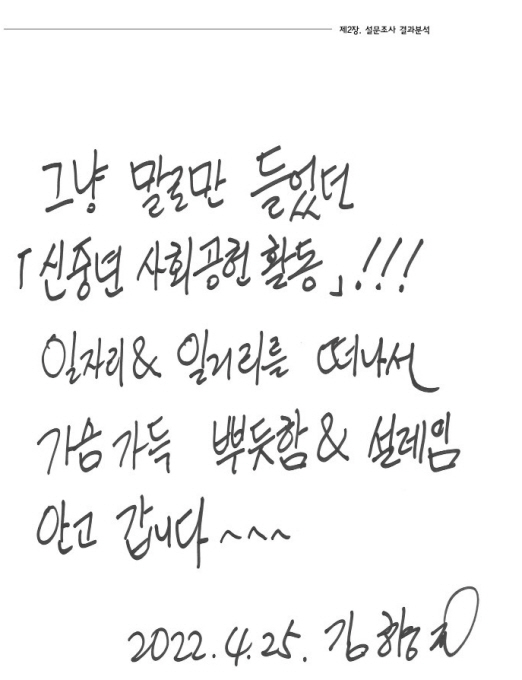 제2장. 설문조사 결과분석
그냥 말로만 들었던
「신중년 사회공헌 활동」!!!
일자리 & 일거리를 떠나서
가슴 가득 뿌듯함 & 설레임
안고 갑니다~~~
2022.4.25. 김향